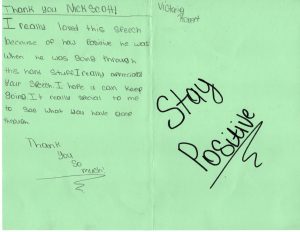 Thank you NICK SCOTT!
I really loved this speech
because of how Positive he was
when he was going through
this hard stuff. I really appreciate
Your Speech. I hope u can keep
going. It really special to me
to see what you have gone
through.
Thank
You
So
much!
Victoria
Stay
Positive